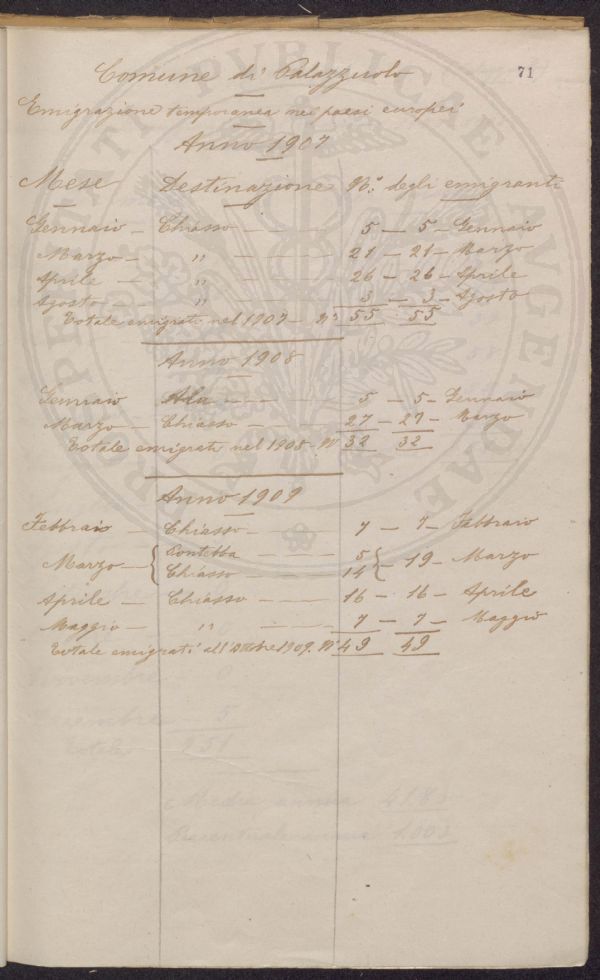 71
Comune di Palazzuolo
Emigrazione temporanea nei paesi europei
Anno 1907
Mese Destinazione No. degli emigranti
Gennaio - Chiasso - - - 5 - 5 - Gennaio
Marzo - " - - - 21 - 21 - Marzo
Aprile - " - - - 26 - 26 - Aprile
Agosto - - " - - - 3 - 3 - Agosto
Totale emigrati nel 1907 - No 55 55
Anno 1908
Gennaio Ala - - - 5 - 5 - Gennaio
Marzo - Chiasso - - - 27 - 27 - Marzo
Totale emigrati nel 1908 - No 32 32
Anno 1909
Febbraio - Chiasso - - - 7 - 7 - Febbraio
Marzo - { Pontebba - - - 5
Chiasso - - - 14 } - 19 - Marzo
Aprile - Chiasso - - - 16 - 16 - Aprile
Maggio - " - - - 7 - 7 - Maggio
Totale emigrati all' 1909. No 49 49
PROSPERITATI PUBLICAE AUGENDAE